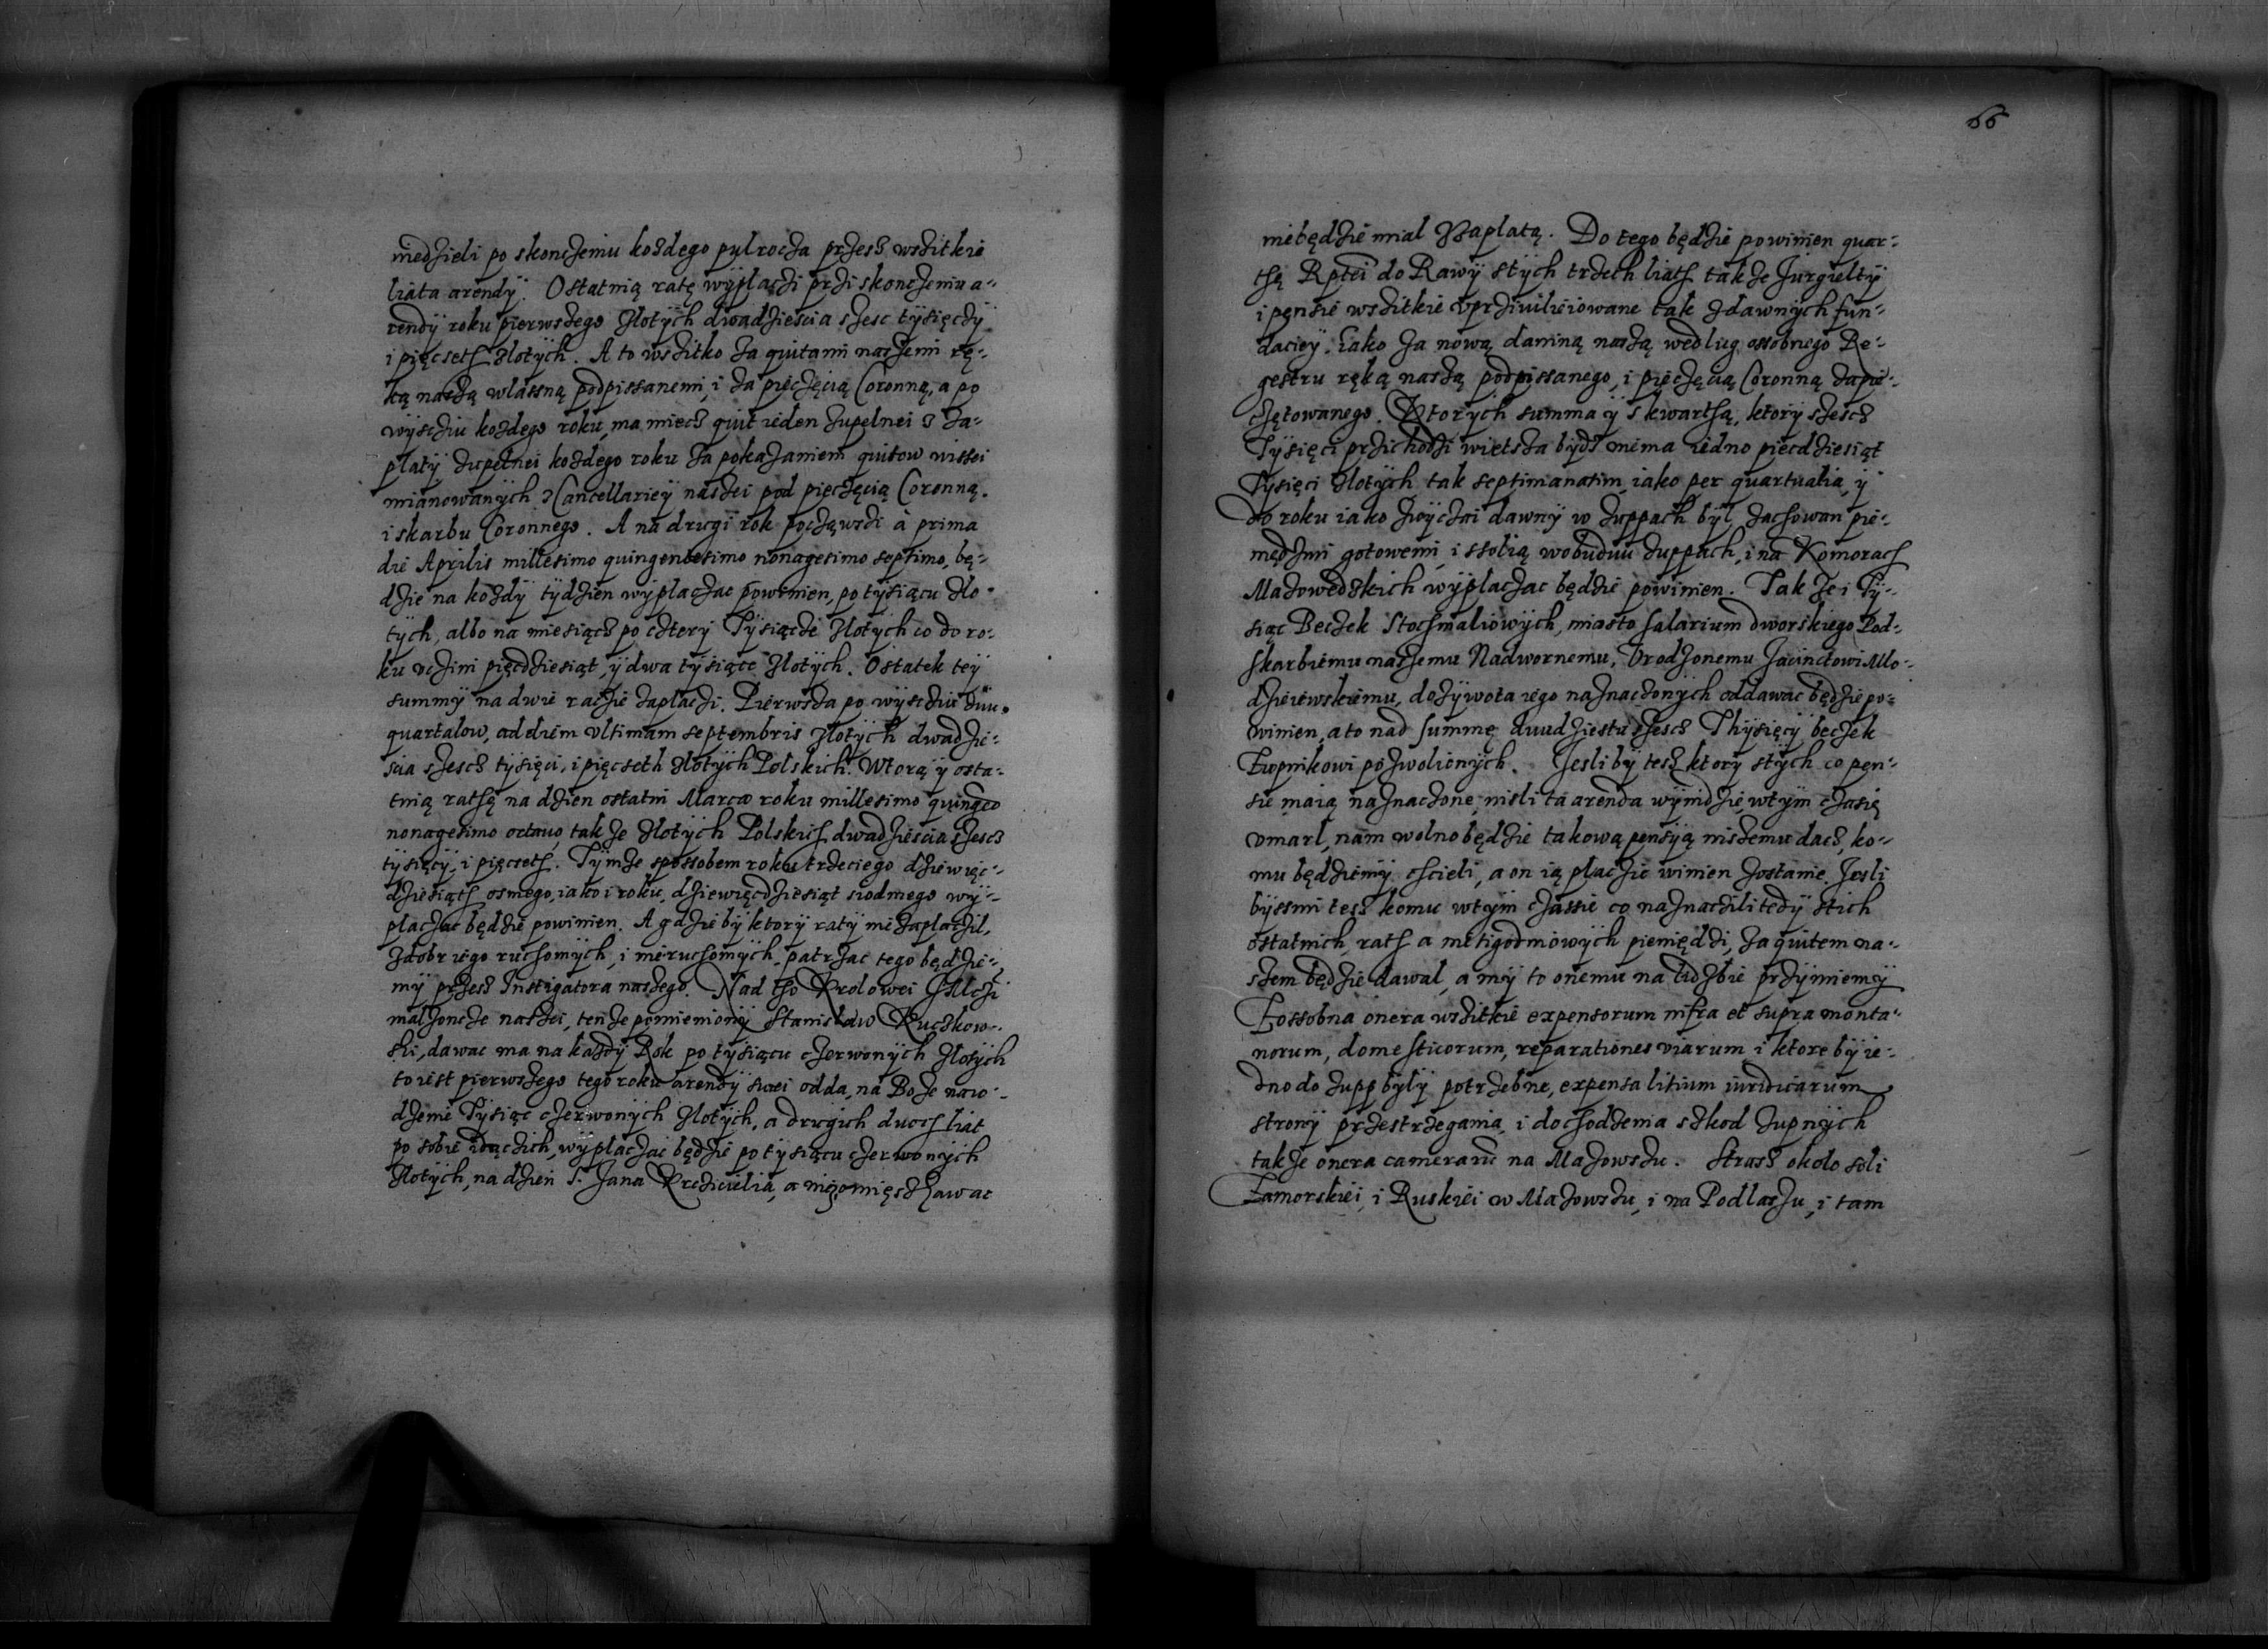 niedzieli po skonczeniu kozdego pulrocza przesz wszitkie
liata arendÿ. Ostatnią ratę wÿplaczi przi skonczeniu a-
rendÿ roku pierwszego zlotÿch dwadziescia szesc tÿsięczÿ
i pięcseth zlotÿch. A to wszitko za quitami naszemi rę-
ką naszą wlassną podpissanemi, i za pieczęcią Coronną, a po
wÿscziu kozdego roku, ma miecz quit ieden zupelnei z za-
platÿ zupelnei kozdego roku za pokazaniem quitow wissei
mianowanÿch z Cancellarieÿ naszei pod pieczęcią Coronną
i skarbu Coronnego. A na drugi rok począwszi à prima
die Aprilis millesimo quingentesimo nonagesimo septimo, bę-
dzie na kozdÿ tÿdzien wÿplaczac powinien, po tÿsiącu zlo-
tÿch, albo na miesiącz po czterÿ Tÿsiącze zlotÿch co do ro-
ku uczini pięcdziesiąt, ÿ dwa tÿsiące zlotÿch. Ostatek teÿ
summÿ na dwie racie zaplaczi. Pierwsza po wÿscziu dwu
quartalow, ad diem vltimam septembris zlotÿch dwadzie-
scia szescz tÿsięci, i pięcseth zlotÿch Polskich. Wtorą ÿ osta-
tnią rathą na dzien ostatni Marca roku millesimo quingeo
nonagesimo octauo, takze zlotÿch Polskich dwadziescia szescz
tÿsięcÿ, i pięcseth. Tÿmze spossobem roku trzeciego dziewięc-
dziesiąth osmego, iako i roku, dziewięcdziesiąt siodmego wÿ-
placzac będzie powinien. A gdzie bÿ ktorÿ ratÿ nie zaplaczil,
z dobr iego ruchomÿch, i nieruchomÿch patrzac tego będzie-
mÿ przesz Instigatora naszego. Nad tho Krolowei JMczi
malzoncze naszei, tenze pomienionÿ Stanislaw Ruczkow-
ski, dawac ma na kazdÿ Rok po tÿsiącu czerwonÿch zlotÿch
to iest pierwszego tego roku arendÿ swei odda, na Boze naro-
dzenie Tÿsiąc czerwonÿch zlotÿch, a drugich dwoch liat
po sobie idączich, wÿplaczac będzie po tÿsiącu czerwonÿch
zlotÿch, na dzien S. Jana Krzciciela, a
66
niebędzie mial Zaplatą. Do tego będzie powinien quar-
thę Rptei do Rawÿ z tÿch trzech liath takze Jurgieltÿ
i pensie wszitkie vprziuiliowane tak z dawnÿch fun-
dacieÿ, iako za nową daniną naszą wedlug ossobnego Re-
gestru ręką naszą podpissanego, i pieczęcią Coronną zapie-
czętowanego. Ktorÿch summa ÿ s kwarthą, ktorÿ szescz
Tÿsięci przichodzi wietsza bÿdz niema iedno piecdziesiąt
Tÿsięci zlotÿch tak septimanatim, iako per quartualia, ÿ
do roku iako zwÿczai dawnÿ w zuppach bÿl zachowan pie-
niędzmi gotowemi, i ssolią wobudwu zuppach, i na Komorach
Mazowedzkich wÿplaczac będzie powinien. Tak ze i Tÿ-
siąc Beczek Stochmaliowÿch, miasto salarium dworskiego Pod-
skarbiemu naszemu Nadwornemu, Vrodzonemu Jacinctowi Mlo-
dzieiewskiemu, do zÿwota iego naznaczonÿch oddawac będzie po-
winien, a to nad summę dwudziestu szescz Thÿsięcÿ beczek
Zupnikowi pozwolionÿch. Jesli bÿ tesz ktorÿ z tÿch co pen-
sie maią naznaczone, nisli ta arenda wÿnidzie, wtÿm czasię
vmarl, nam wolno będzie takową pensÿą niszemu dacz, ko-
mu będziemÿ chcieli, a on ią placzie winien zostanie. Jesli
bÿssmi tesz komu wtÿm czassie co naznaczili tedÿ z tich
ostatnich, rath a nie tigodniowÿch pieniędzi, za quitem na-
szem będzie dawal, a mÿ to onemu na liczbie przÿmiemÿ
Zossobna onera wszitkie expensorum infra et supra monta-
norum, domesticorum, reparationes viarum, i ktore bÿ ie-
dno do zupp bÿlÿ potrzebne, expensa litium iuridicarum
stronÿ przestrzegania, i dochodzenia szkod zupnÿch
takze onera camerarū na Mazowszu. Strasz okolo soli
Zamorskiei, i Ruskiei w Mazowszu, i na Podlaszu, i tam